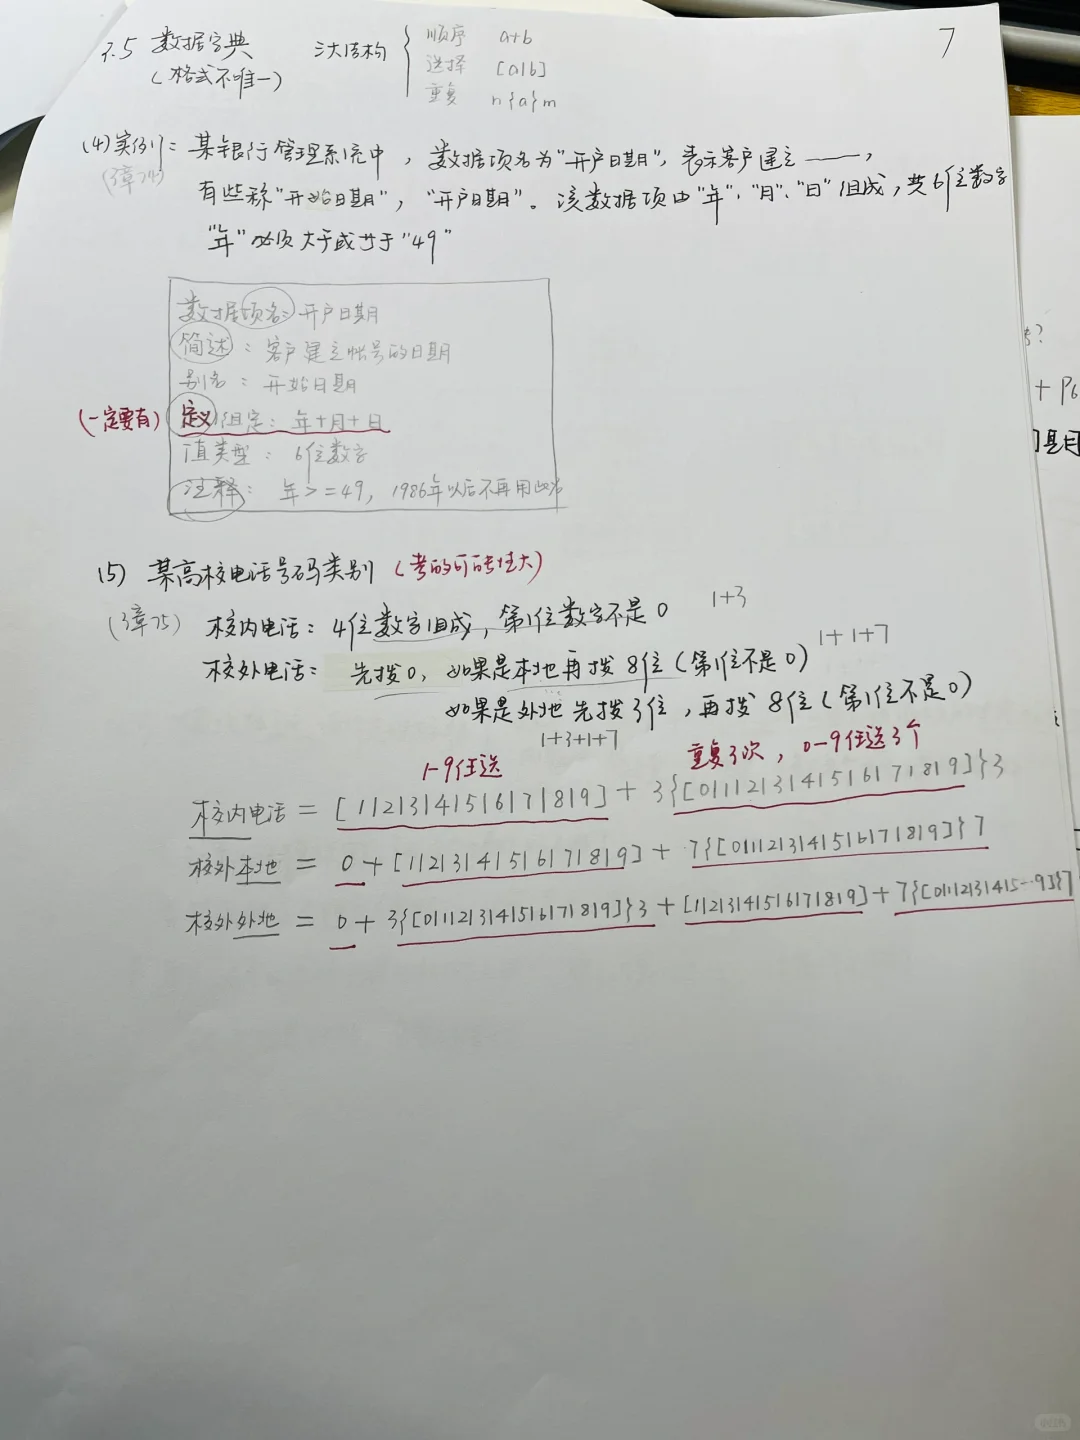 7
3.5 数据字典
(格式不唯一)
三大结构
顺序 a+b
选择 [a|b]
重复 n{a}m
(4)实例: 某银行管理系统中, 数据项名为"开户日期", 表示客户建立——,
(3章74)
有些称"开始日期", "开户日期"。该数据项由"年"、"月"、"日"组成, 共6位数字
"年"必须大于或等于"49"
数据项名: 开户日期
简述: 客户建立帐号的日期
别名: 开始日期
(一定要有) 定义 组定: 年+月+日
值类型: 6位数字
注释: 年>=49, 1986年以后不再用此
(5) 某高校电话号码类别 (考的可能性大)
(3章75) 校内电话: 4位数字组成, 第1位数字不是0 1+3
校外电话: 先拨0, 如果是本地再拨8位(第1位不是0) 1+1+7
如果是外地先拨3位, 再拨8位(第1位不是0)
1+3+1+7
1-9任选 重复3次, 0-9任选3个
校内电话 = [1|2|3|4|5|6|7|8|9] + 3{[0|1|2|3|4|5|6|7|8|9]}3
校外本地 = 0 + [1|2|3|4|5|6|7|8|9] + 7{[0|1|2|3|4|5|6|7|8|9]}7
校外外地 = 0 + 3{[0|1|2|3|4|5|6|7|8|9]}3 + [1|2|3|4|5|6|7|8|9] + 7{[0|1|2|3|4|5…9]}7